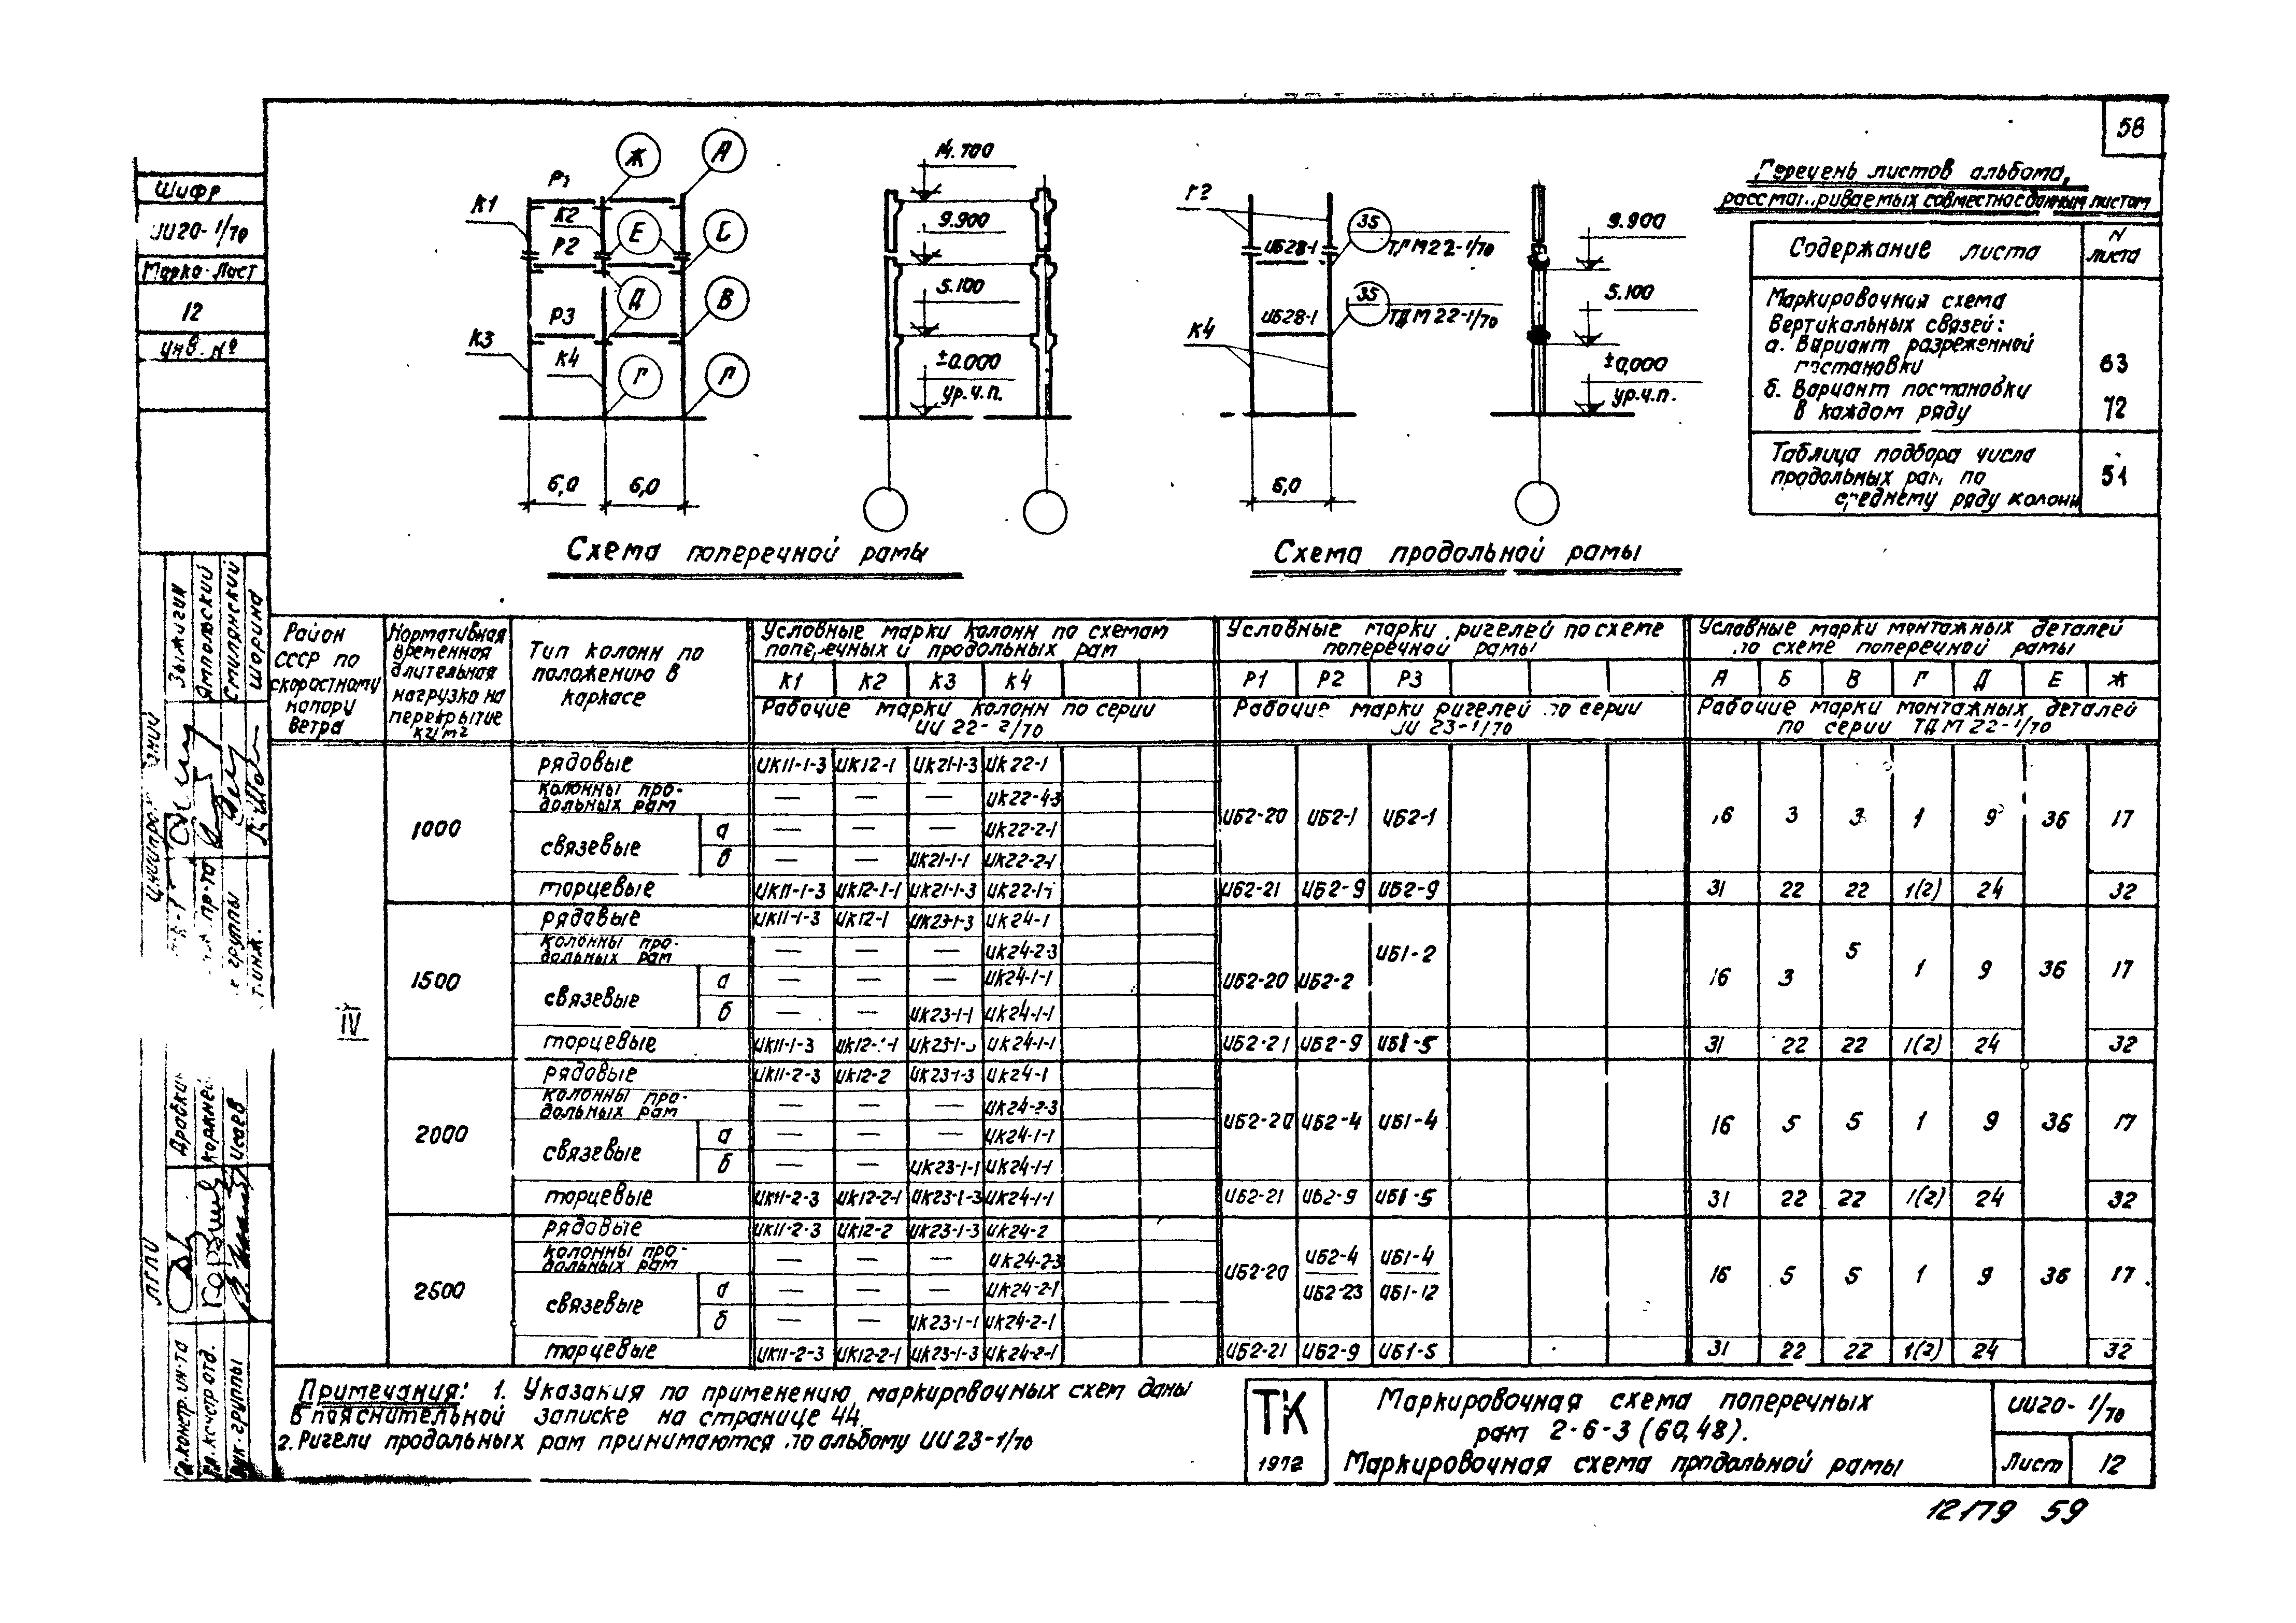 58
Шифр
ИИ20-1/70
Марка-Лист
12
Инв. №
Ж
А
К1
Р1
К2
Е
С
Р2
Д
В
Р3
К3
К4
Г
6,0
6,0
Схема поперечной рамы
14.700
9.900
5.100
±0.000
ур.ч.п.
35
ИБ28-1
ТДМ22-1/70
35
ИБ28-1
ТДМ22-1/70
К4
6,0
9.900
5.100
±0,000
ур.ч.п.
Схема продольной рамы
Перечень листов альбома,
рассматриваемых совместно с данным листом
Содержание листа
N листа
Маркировочная схема
вертикальных связей:
а. Вариант разреженной
постановки
63
б. Вариант постановки
в каждом ряду
72
Таблица подбора числа
продольных рам по
среднему ряду колонн
51
Район СССР по скоростному напору ветра
Нормативная временная длительная нагрузка на перекрытие кг/м2
Тип колонн по положению в каркасе
Условные марки колонн по схемам поперечных и продольных рам
Условные марки ригелей по схеме поперечной рамы
Условные марки монтажных деталей по схеме поперечной рамы
К1 К2 К3 К4
Р1 Р2 Р3
А Б В Г Д Е Ж
Рабочие марки колонн по серии ИИ 22-2/70
Рабочие марки ригелей по серии ИИ 23-1/70
Рабочие марки монтажных деталей по серии ТДМ 22-1/70
IV
1000
рядовые ИК11-1-3 ИК12-1 ИК21-1-3 ИК22-1
колонны продольных рам — — — ИК22-4-3
связевые а — — — ИК22-2-1
б — — ИК21-1-1 ИК22-2-1
ИБ2-20 ИБ2-1 ИБ2-1 16 3 3 1 9 36 17
торцевые ИК11-1-3 ИК12-1-1 ИК21-1-3 ИК22-1-1 ИБ2-21 ИБ2-9 ИБ2-9 31 22 22 1(2) 24 32
1500
рядовые ИК11-1-3 ИК12-1 ИК23-1-3 ИК24-1
колонны продольных рам — — — ИК24-2-3
связевые а — — — ИК24-1-1
б — — ИК23-1-1 ИК24-1-1
ИБ2-20 ИБ2-2 ИБ1-2 16 3 5 1 9 36 17
торцевые ИК11-1-3 ИК12-1-1 ИК23-1-3 ИК24-1-1 ИБ2-21 ИБ2-9 ИБ1-5 31 22 22 1(2) 24 32
2000
рядовые ИК11-2-3 ИК12-2 ИК23-1-3 ИК24-1
колонны продольных рам — — — ИК24-2-3
связевые а — — — ИК24-1-1
б — — ИК23-1-1 ИК24-1-1
ИБ2-20 ИБ2-4 ИБ1-4 16 5 5 1 9 36 17
торцевые ИК11-2-3 ИК12-2-1 ИК23-1-3 ИК24-1-1 ИБ2-21 ИБ2-9 ИБ1-5 31 22 22 1(2) 24 32
2500
рядовые ИК11-2-3 ИК12-2 ИК23-1-3 ИК24-2
колонны продольных рам — — — ИК24-2-3
связевые а — — — ИК24-2-1
б — — ИК23-1-1 ИК24-2-1
ИБ2-20 ИБ2-4 ИБ1-4 16 5 5 1 9 36 17
ИБ2-23 ИБ1-12
торцевые ИК11-2-3 ИК12-2-1 ИК23-1-3 ИК24-2-1 ИБ2-21 ИБ2-9 ИБ1-5 31 22 22 1(2) 24 32
Примечания: 1. Указания по применению маркировочных схем даны
в пояснительной записке на странице 44.
2. Ригели продольных рам принимаются по альбому ИИ23-1/70
ТК
1972
Маркировочная схема поперечных
рам 2-6-3 (60,48).
Маркировочная схема продольной рамы
ИИ20-1/70
Лист 12
12179 59
Выжигин
Ямпольский
Смилянский
Шарина
Исаев
Гл.констр.ин-та
Гл.констр.отд.
Рук.группы